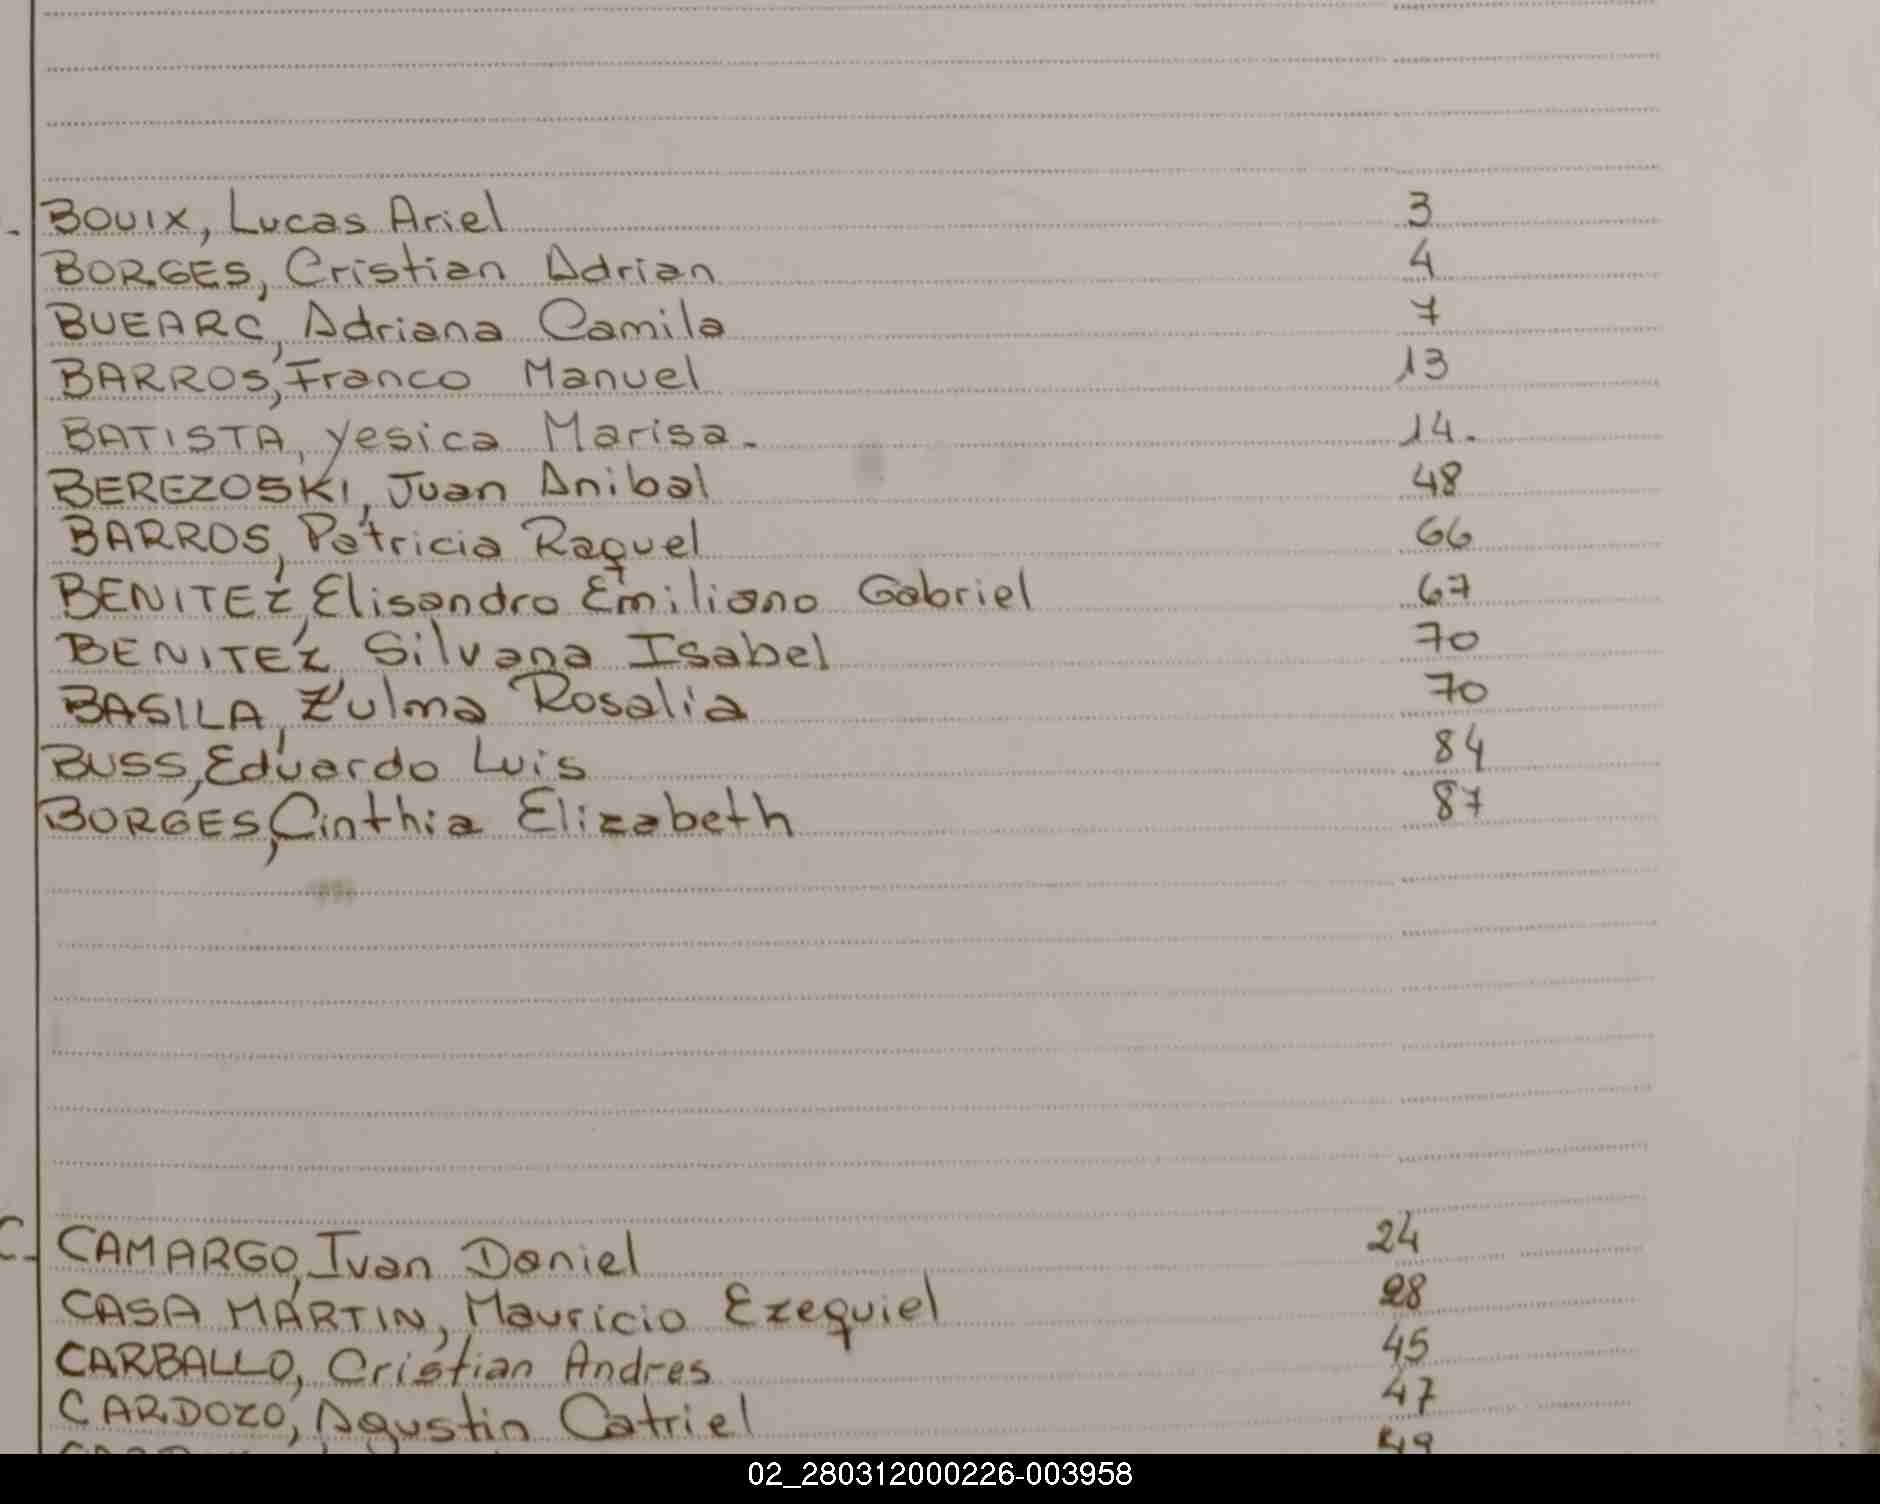 BOUIX, Lucas Ariel 3
BORGES, Cristian Adrian 4
BUEARC, Adriana Camila 7
BARROS, Franco Manuel 13
BATISTA, Yesica Marisa. 14.
BEREZOSKI, Juan Anibal 48
BARROS, Patricia Raquel 66
BENITEZ, Elisandro Emiliano Gabriel 67
BENITEZ, Silvana Isabel 70
BASILA, Zulma Rosalia 70
BUSS, Eduardo Luis 84
BORGES, Cinthia Elizabeth 87
C. CAMARGO, Ivan Daniel 24
CASA MARTIN, Mauricio Ezequiel 28
CARBALLO, Cristian Andres 45
CARDOZO, Agustin Catriel 47
49
02_280312000226-003958